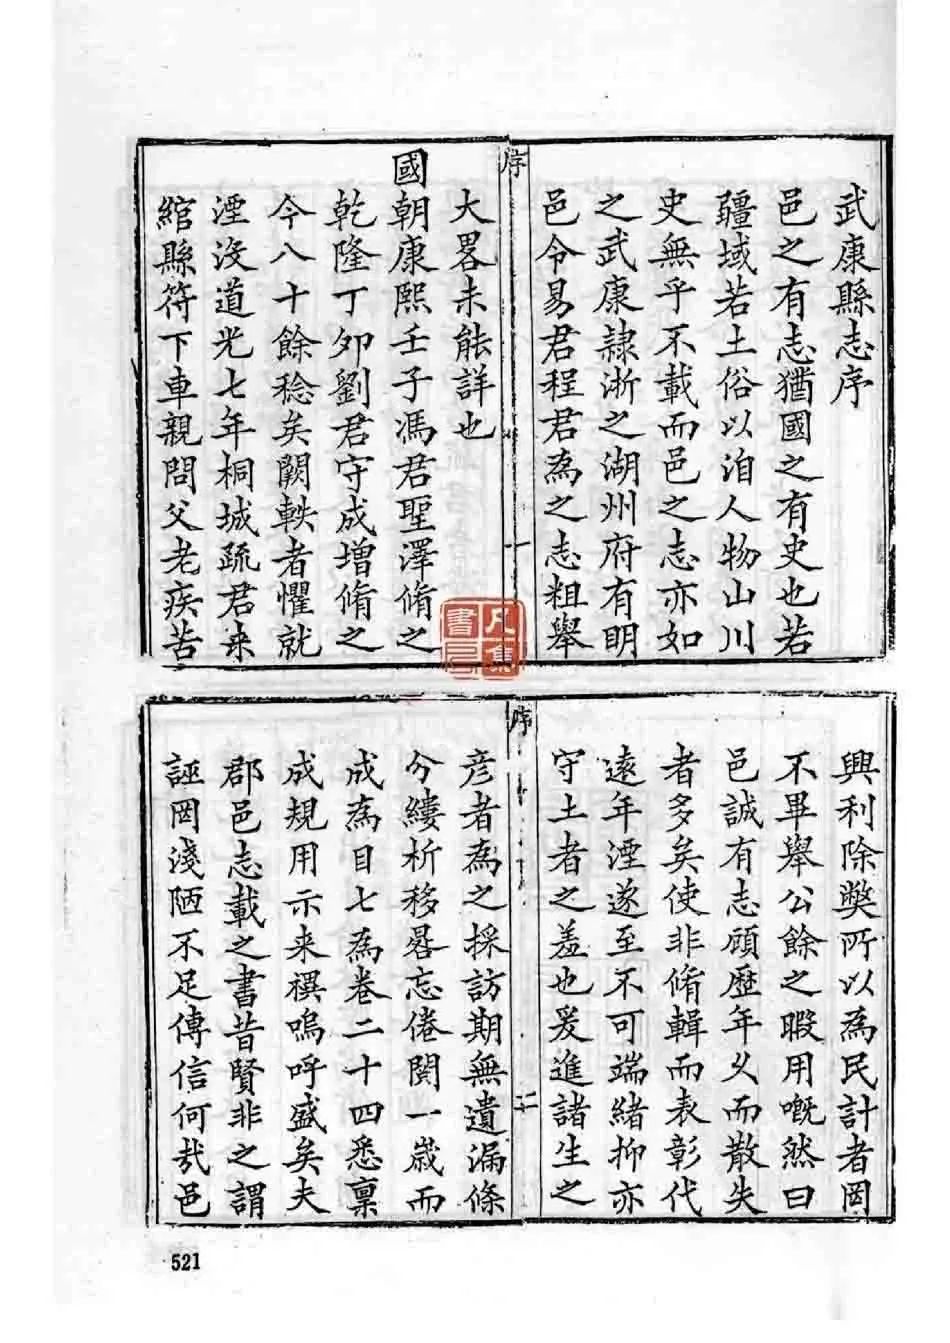 武康縣志序
邑之有志猶國之有史也若
疆域若土俗以洎人物山川
史無乎不載而邑之志亦如
之武康隷淅之湖州府有明
邑令易君程君為之志粗舉
序
一
大畧未能詳也
國朝康熙壬子馮君聖澤脩之
乾隆丁夘劉君守成增脩之
今八十餘稔矣闕軼者懼就
湮沒道光七年桐城疏君来
綰縣符下車親問父老疾苦
興利除獘所以為民計者罔
不畢舉公餘之暇用嘅然曰
邑誠有志顧歷年久而散失
者多矣使非脩輯而表彰代
遠年湮遂至不可端緒抑亦
守土者之羞也爰進諸生之
序
二
彦者為之採訪期無遺漏條
分縷析移晷忘倦閱一歲而
成為目七為卷二十四悉稟
成規用示来禩嗚呼盛矣夫
郡邑志載之書昔賢非之謂
誣罔淺陋不足傳信何㢤邑
凡集書
521